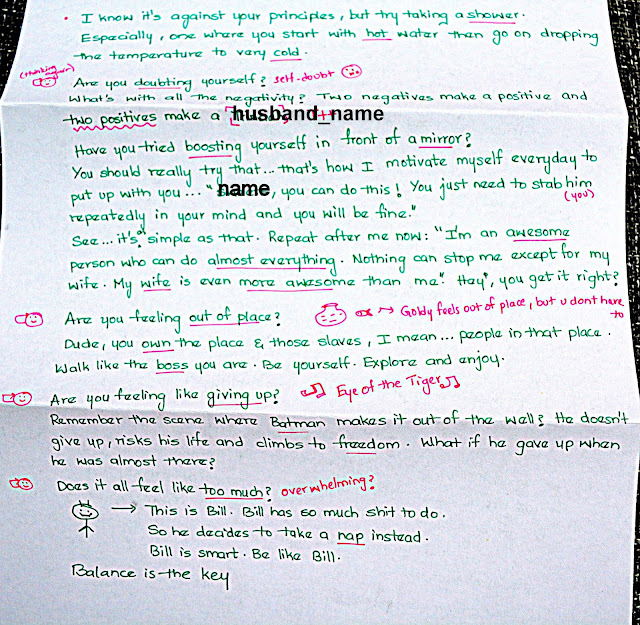 • I know it's against your principles, but try taking a shower.
Especially, one where you start with hot water then go on dropping
the temperature to very cold.
(thinking
again)
Are you doubting yourself? self-doubt
What's with all the negativity? Two negatives make a positive and
two positives make a husband_name
Have you tried boosting yourself in front of a mirror?
You should really try that... that's how I motivate myself everyday to
put up with you... "name, you can do this! You just need to stab him
(you)
repeatedly in your mind and you will be fine."
See... it's as simple as that. Repeat after me now: "I'm an awesome
person who can do almost everything. Nothing can stop me except for my
wife. My wife is even more awesome than me". Hey, you get it right?
Are you feeling out of place? Goldy feels out of place, but u dont have
to
Dude, you own the place & those slaves, I mean... people in that place.
Walk like the boss you are. Be yourself. Explore and enjoy.
Are you feeling like giving up? ♫ Eye of the Tiger ♫
Remember the scene where Batman makes it out of the well? He doesn't
give up, risks his life and climbs to freedom. What if he gave up when
he was almost there?
Does it all feel like too much? overwhelming?
→ This is Bill. Bill has so much shit to do.
So he decides to take a nap instead.
Bill is smart. Be like Bill.
Balance is the key